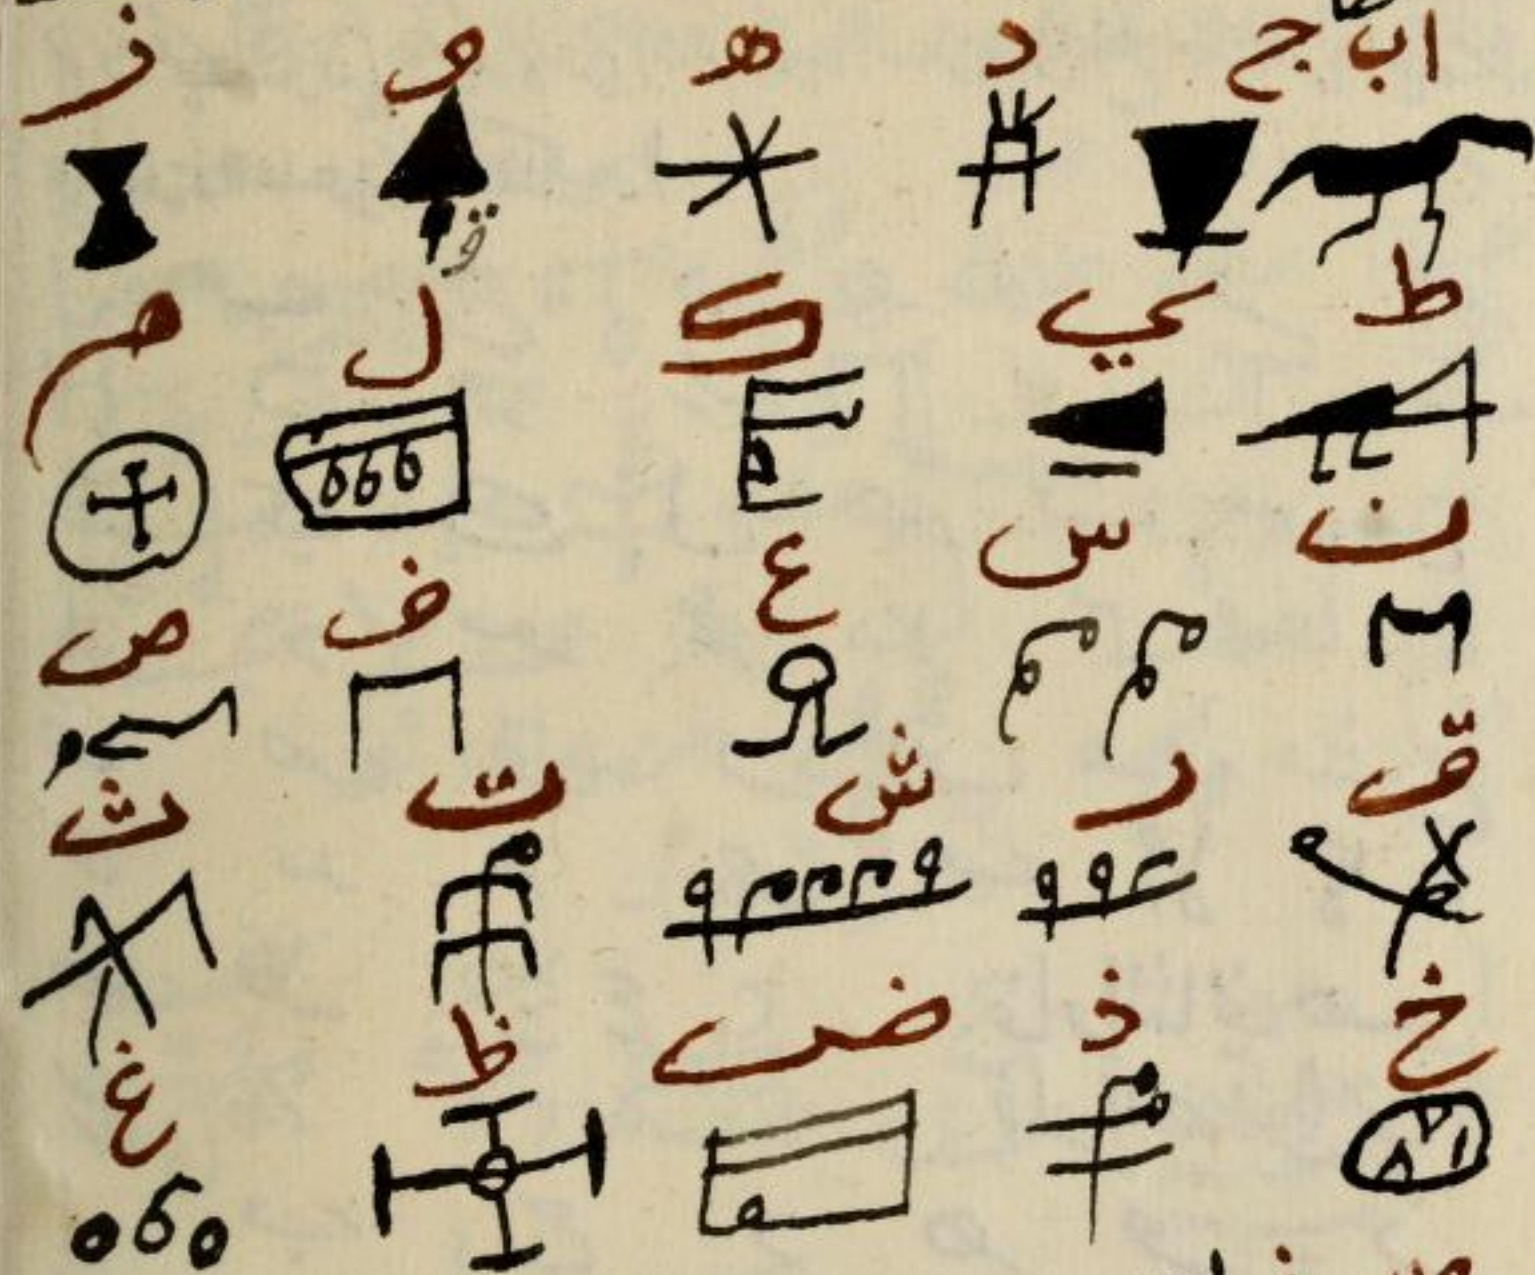 اب ج د ه و ز
ق
ط ي ك ل م
ن س ع ف ص
ق ر ش ت ث
خ ذ ض ظ غ